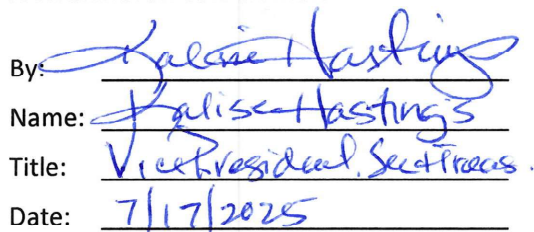 By: Kalise Hastings
Name: Kalise Hastings
Title: Vice President, Sec-Treas.
Date: 7/17/2025